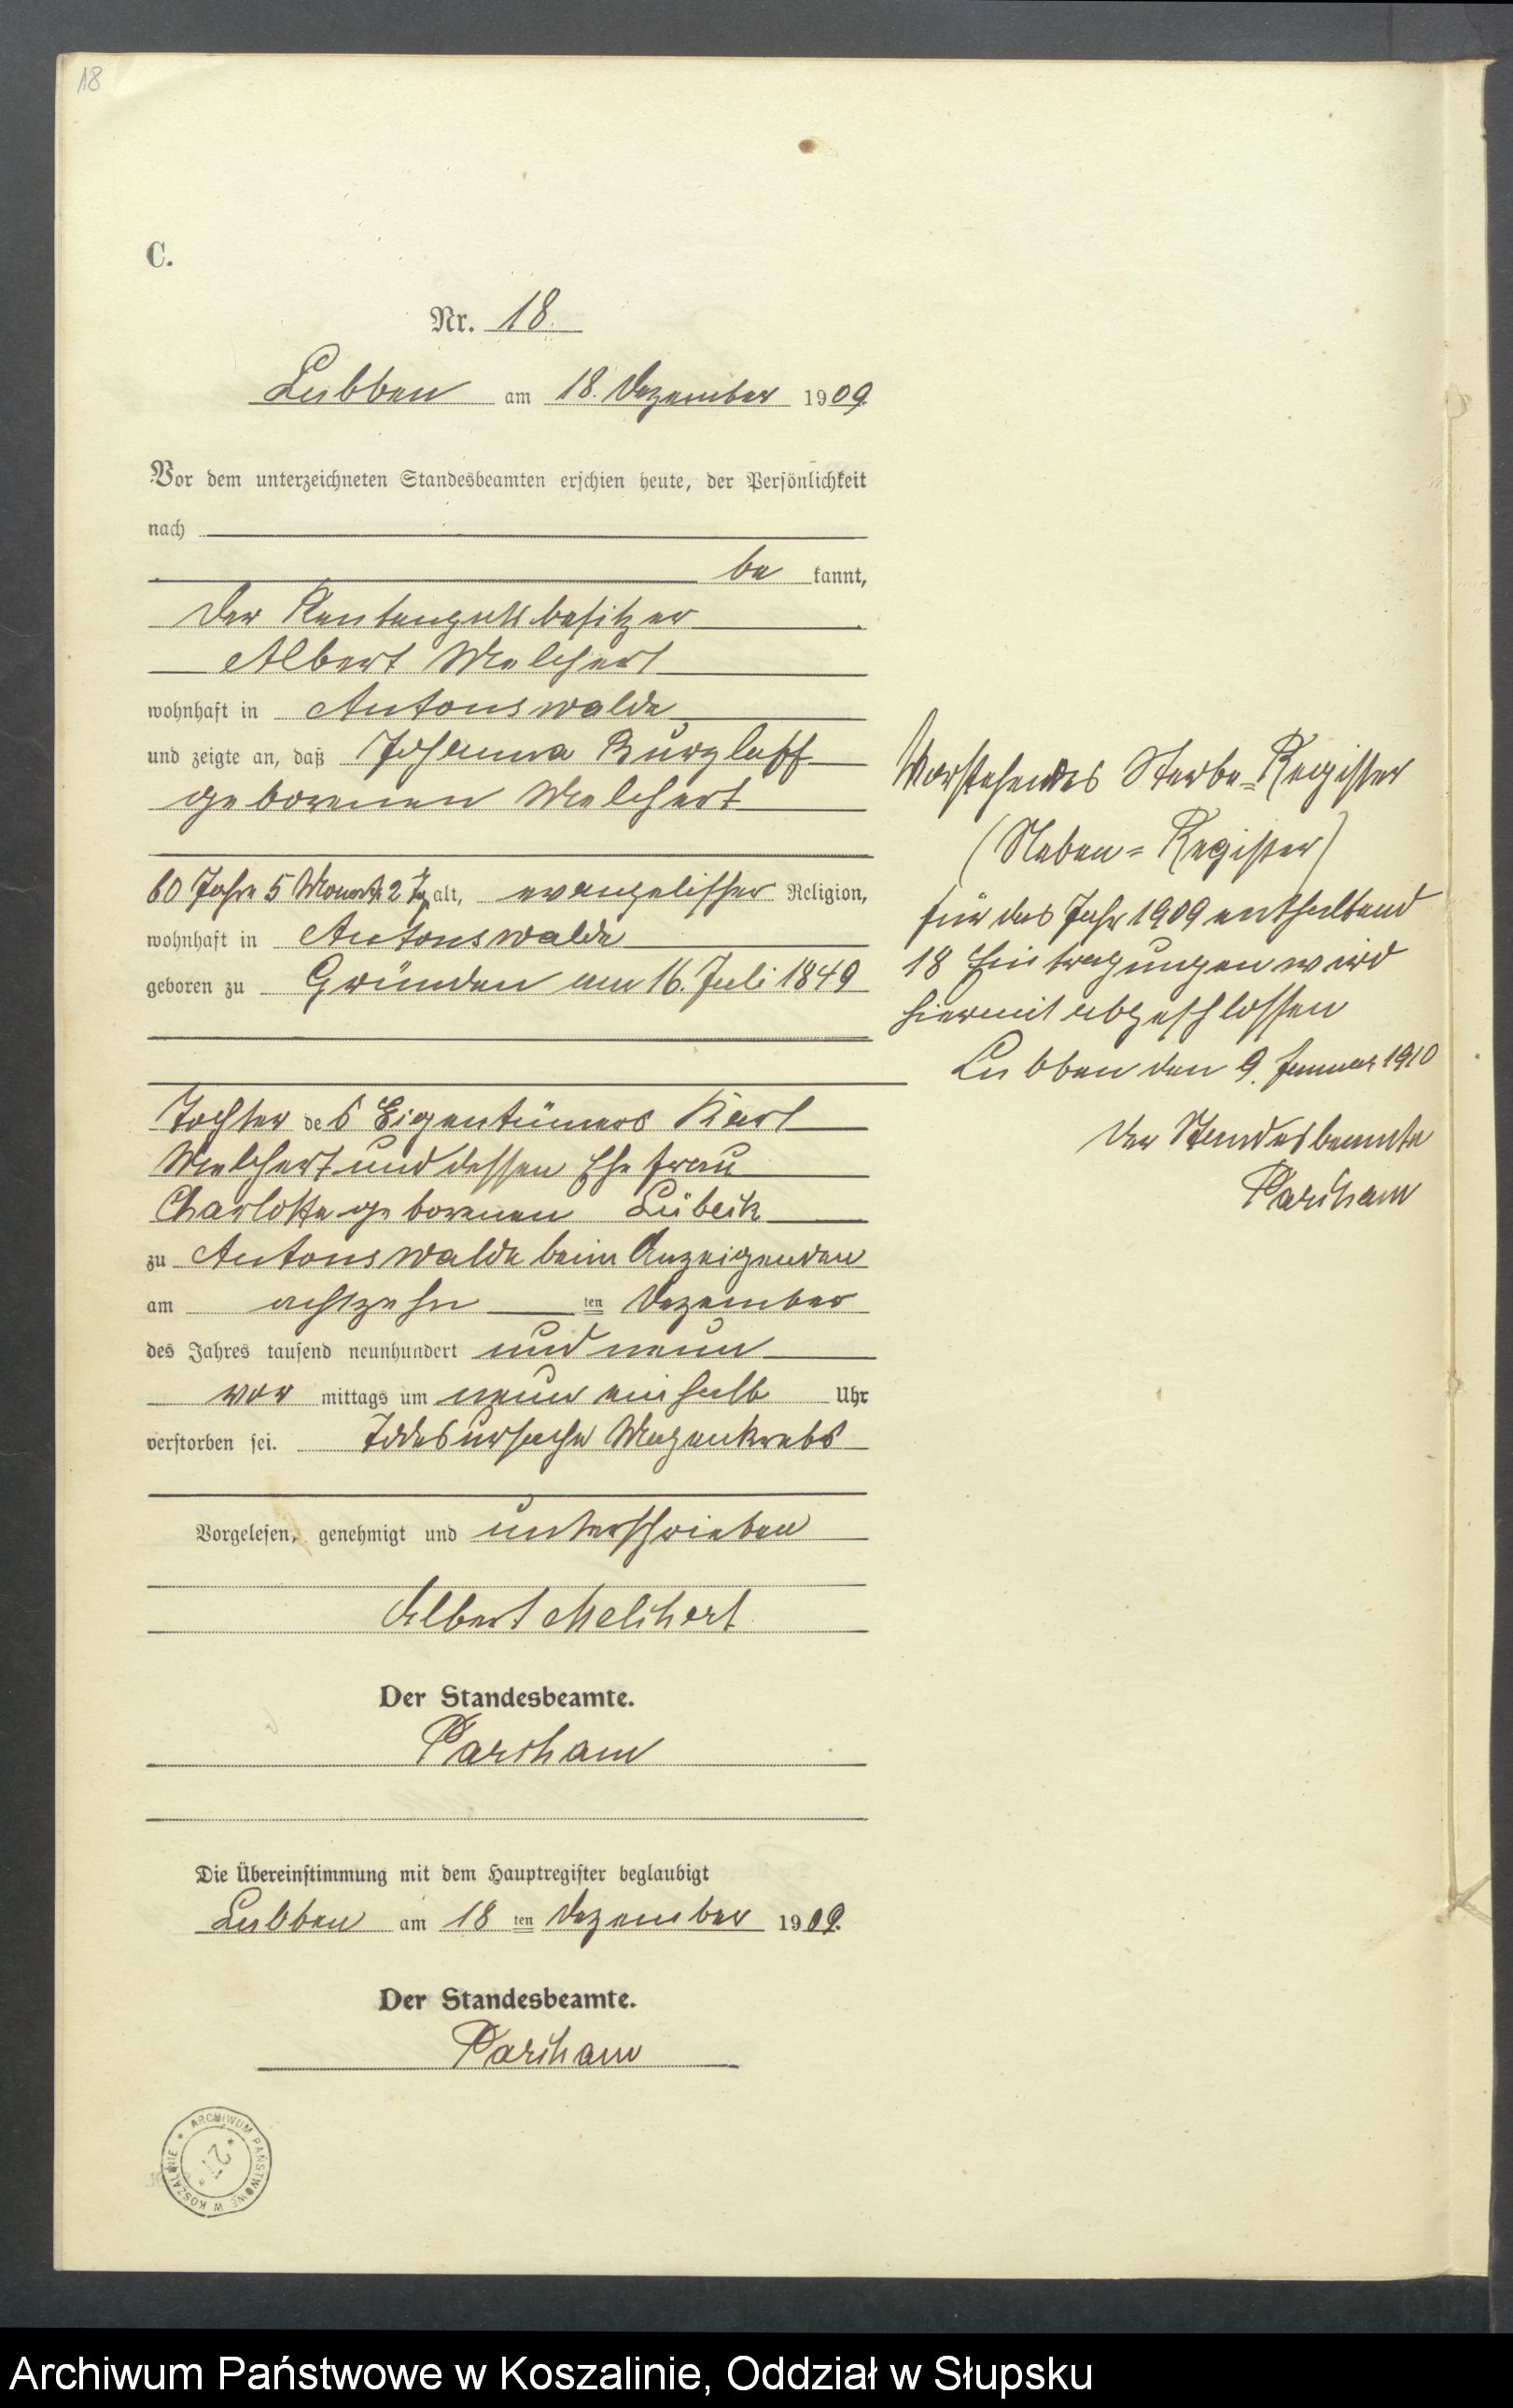 18
C.
Nr. 18.
Lubben am 18. Dezember 1909.
Vor dem unterzeichneten Standesbeamten erschien heute, der Persönlichkeit
nach
be kannt,
der Rentengutsbesitzer
Albert Melchert
wohnhaft in Antonswalde
und zeigte an, daß Johanna Kurzlaff
geborenen Melchert
60 Jahre 5 Monate 2 Tg alt, evangelischer Religion,
wohnhaft in Antonswalde
geboren zu Gründen am 16. Juli 1849
Tochter des Eigentümers Karl
Melchert und dessen Ehefrau
Charlotte geborenen Lübeck
zu Antonswalde beim Anzeigenden
am achtzehn ten Dezember
des Jahres tausend neunhundert und neun
vor mittags um neun einhalb Uhr
verstorben sei. Todesursache Magenkrebs
Vorgelesen, genehmigt und unterschrieben
Albert Melchert
Der Standesbeamte.
Parcham
Die Übereinstimmung mit dem Hauptregister beglaubigt
Lubben am 18 ten Dezember 1909.
Der Standesbeamte.
Parcham
Vorstehendes Sterbe=Register
(Neben=Register)
für das Jahr 1909 enthaltend
18 Eintragungen wird
hiermit abgeschlossen
Lubben den 9. Januar 1910
Der Standesbeamte
Parcham
ARCHIWUM PAŃSTWOWE W KOSZALINIE
27
Archiwum Państwowe w Koszalinie, Oddział w Słupsku